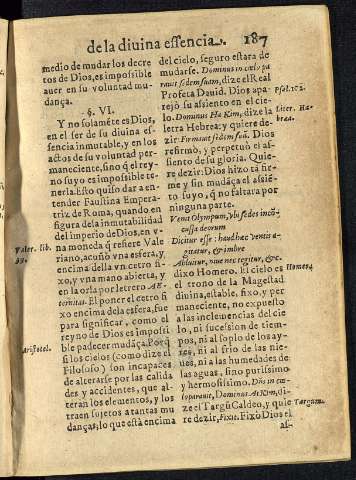 de la diuina essencia. 187
medio de mudar los decre
tos de Dios, es impossible
auer en su voluntad mu-
dança.
§. VI.
Y no solamẽte es Dios,
en el ser de su diuina es-
sencia inmutable, y en los
actos de su voluntad per-
maneciente, sino q̃ el rey-
no suyo es impossible te-
nerla. Esto quiso dar a en-
tender Faustina Empera-
triz de Roma, quando en
figura dela inmutabilidad
del imperio de Dios, en v-
na moneda q̃ refiere Vale
riano, acuñò vna esfera, y
encima della vn cetro fi-
xo, y vna mano abierta, y
en la orla por letrero AE-
ternitas. El poner el cetro fi
xo encima dela esfera, fue
para significar, como el
reyno de Dios es impossi
ble padecer mudãça. Porq̃
si los cielos (como dize el
Filosofo) son incapaces
de alterarse por las calida
des y accidentes, que al-
teran los elementos, y los
traen sujetos a tantas mu
danças; lo que està encima
Valer. lib.
39.
Aristotel.
del cielo, seguro estara de
mudarse. Dominus in cælo pa
rauit sedem suam, dize el Real
Profeta Dauid. Dios apa-
rejò su assiento en el cie-
lo. Dominus Ha Kim, dize la
letra Hebrea: y quiere de-
zir: Firmauit sedem suã. Dios
refirmò, y perpetuò el as-
siento de su gloria. Quie-
re dezir: Dios hizo tã fir-
me y sin mudãça el assiẽ-
to suyo, q̃ no faltara por
ninguna parte.
Venit Olympum, vbi sedes incõ-
cussa deorum
Dicitur esse: haud hæc ventis a-
gitatur, & imbre
Abluitur, niue nec rigitur, &c.
dixo Homero. El cielo es
el trono de la Magestad
diuina, estable, fixo, y per
maneciente, no expuesto
a las inclemencias del cie
lo, ni sucession de tiem-
pos, ni al soplo de los ay-
res, ni al frio de las nie-
ues, ni a las humedades de
las aguas, sino purissimo
y hermosissimo. Dñs in cæ-
lo parauit, Dominus At Kim, di
ze el Targũ Caldeo, y quie
re dezir, Fixit. Fixò Dios el
as-
Psal. 102.
Liter. He-
brea.
Homer.
Targum.